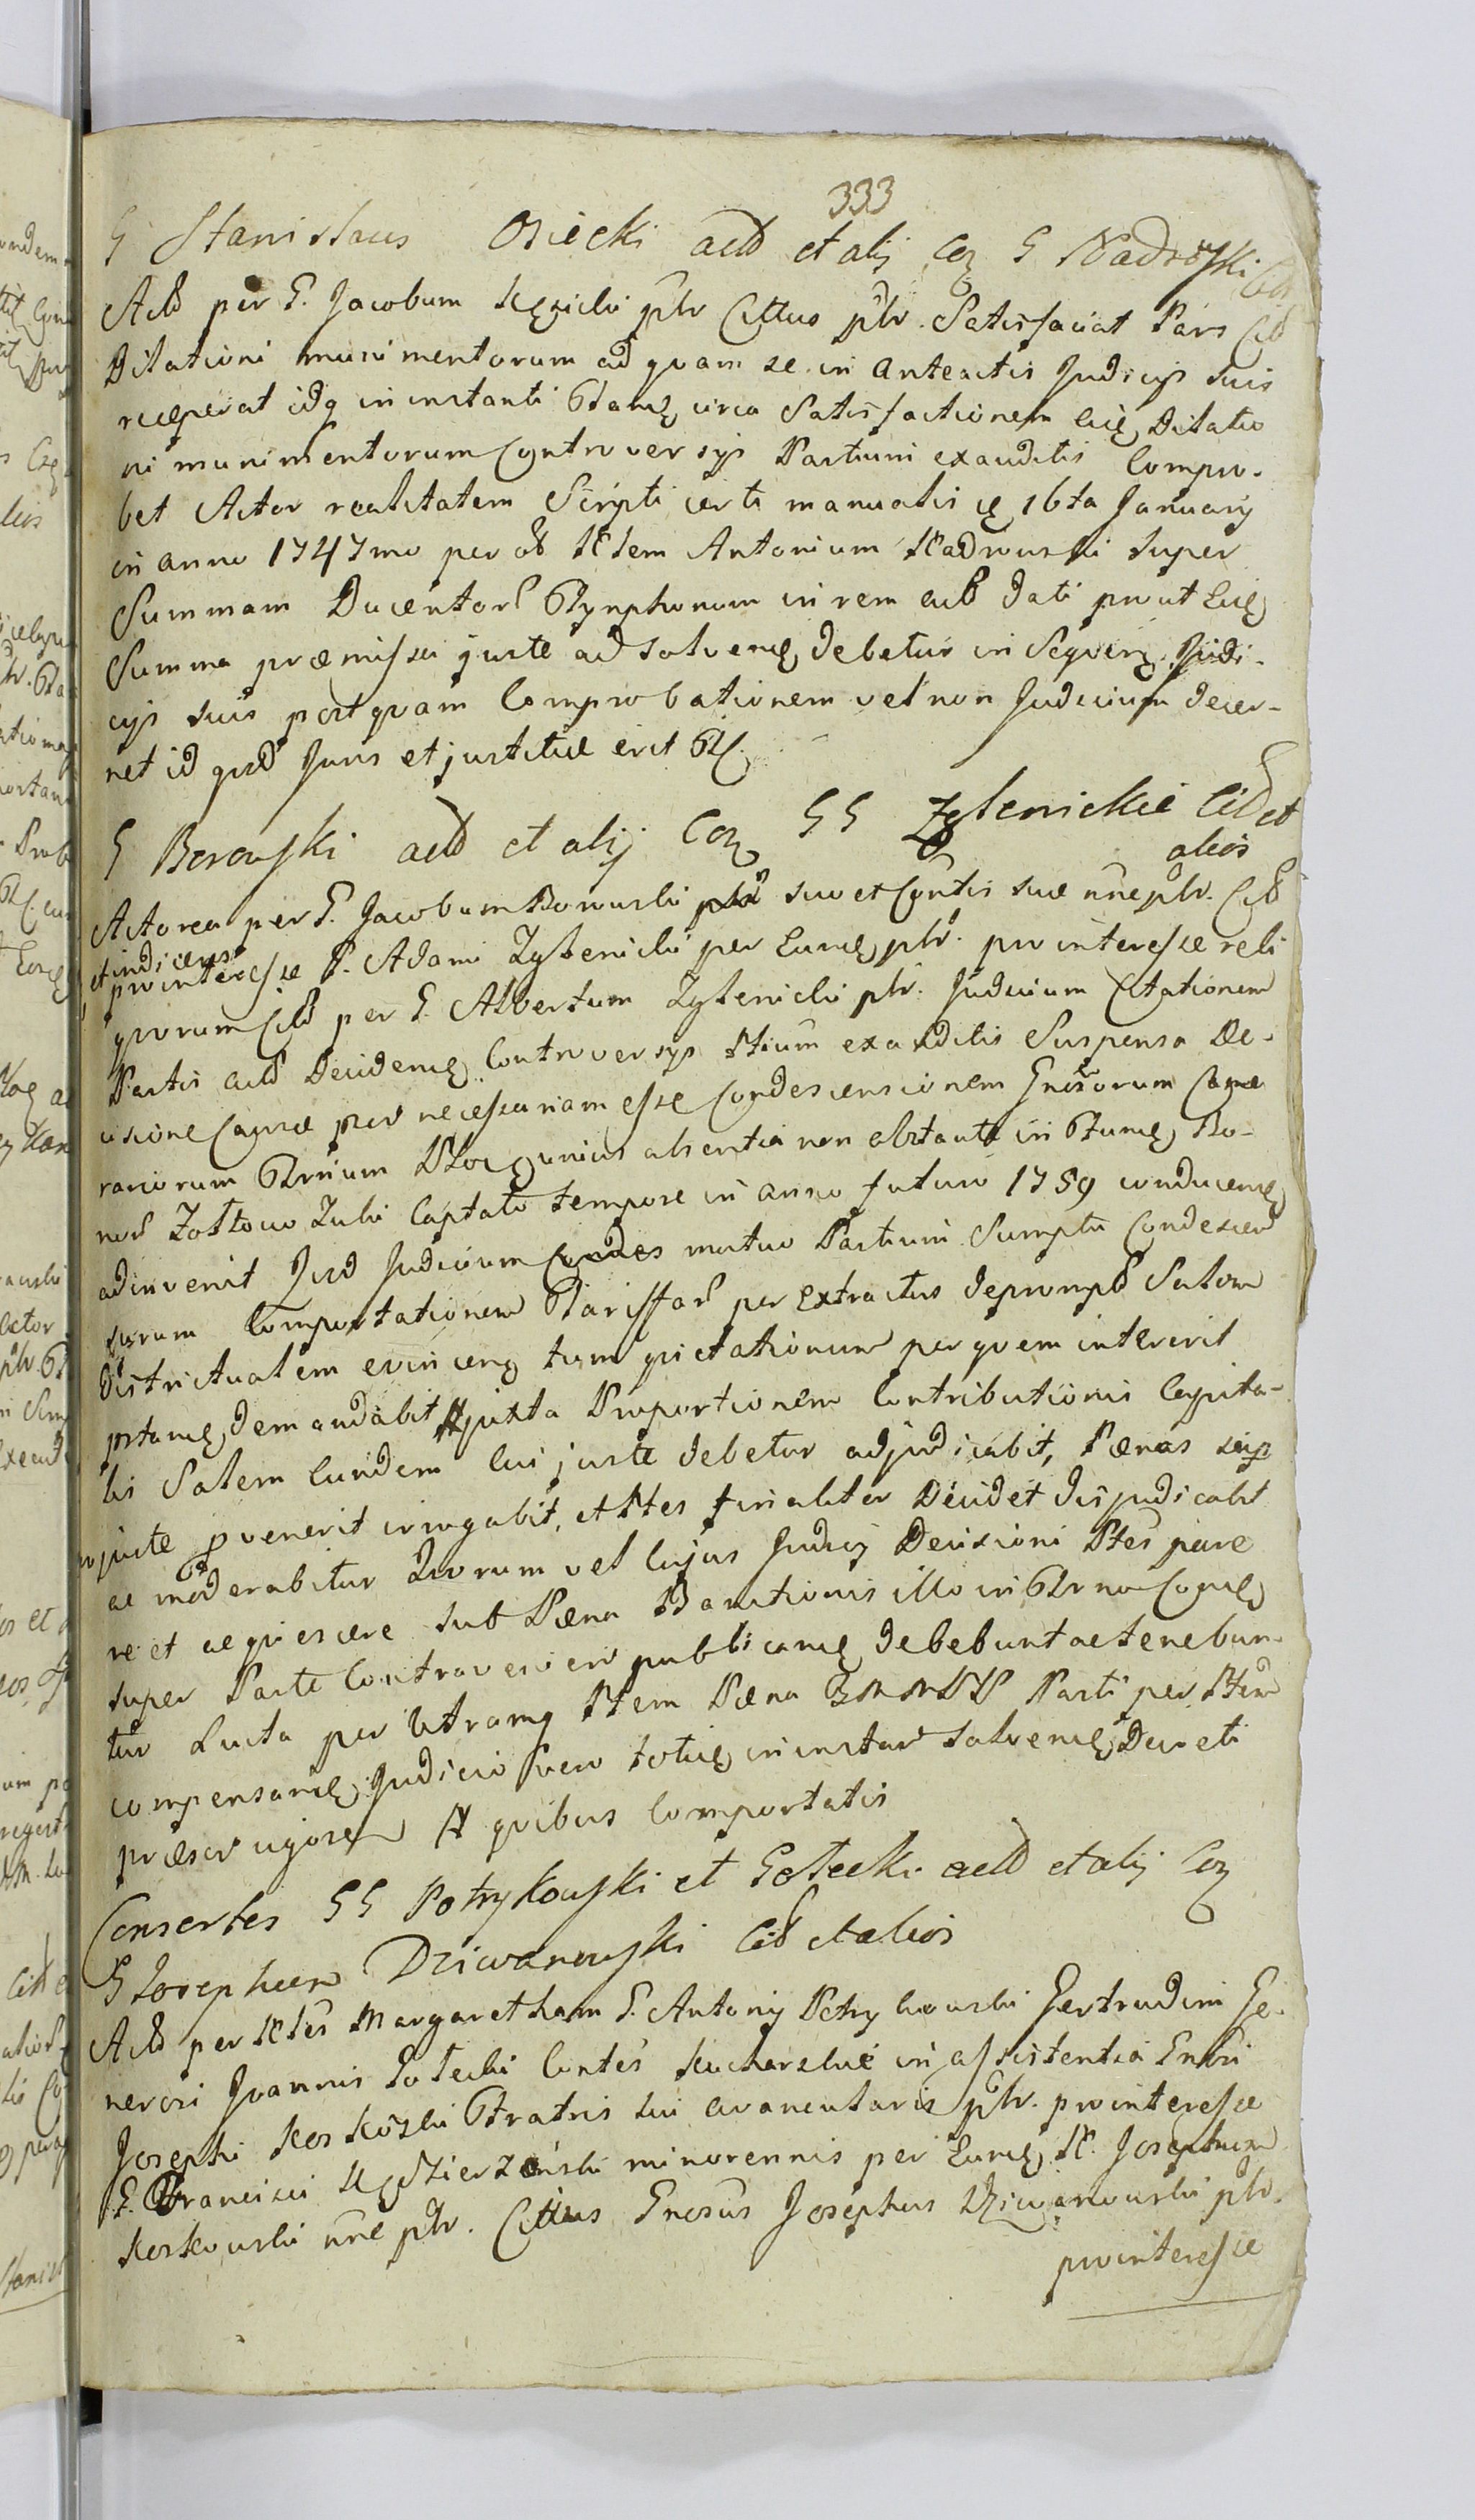 333
G Stanislaus Osiecki actō et alij Coz G Nadroski Citt
Actō per G. Jacobum Kęsicki płr Cittus płr. Satisfaciat Pars Citt
Dilationi munimentorum ad quam se in anteactis Judicijs suis
receperat idq in instanti Stanę circa Satisfactionem eię Dilatio
ni munimentorum Controversijs Partium exauditis Compro-
bet Actor realitatem Scripti certi manualis ię 16ta January
in anno 1747mo per oł Nłem Antonium Nadrowski super
Summam Ducentor Tynphonum in rem actō dati prout Eię
Summa præmissa juste ad solvenę debetur in Sequenę Judi-
cijs suis post quam Comprobationem vel non Judicium decer-
net id quod Juris et justitiæ erit
G Borowski actō et alij Coz GG Zglenickie Citt et
alios
Actorea per G. Jacobum Borowski płr suo et Contis suæ nne płr. Citt
et indicens
pro interesse G. Adami Zglenicki per Eunę płr. pro interesse reli
quorum Citt per G. Albertum Zglenicki płr. Judicium Citationem
Partis actō Decidenę Controversijs Ptium exauditis Suspensa De-
cisione Causæ pro necessariam esse Condescensionem Gnosorum Came
rariorum Trrium Płoc unius absentia non obstante in Fundę Bo-
nor Zołtowo Zuki Captato tempore in anno futuro 1759 conducenę
adinvenit Jusd Judicium Condes mutuo Partium Sumptu Condescen
surum Comportationem Tariffar per extractus depromptō Salom
Districtualem evincenę tum quietationum per quem intererit
pstanę demandabit juxta Proportionem Contributionis Capita-
lis Salem eundem Cui juste debetur adjudicabit, Pænas siqz
injuste pvenerit irrogabit, et Ptes finaliter Decidet dijudicabit
ac moderabitur Quorum vel Cujus Judicij Decisioni Ptes pare
re et acquiescere sub Pæna Bannitionis illo in Trno Conię
super Parte Contraveniew publicanę debebunt ac tenebun-
tur Lucta per Utramq Ptem Pæna 3MMPP Parti per Ptem
compensanę Judicio vero totię in instar solvenę Decreti
præser vigorem A quibus Comportatis
Consortes GG Potrykowski et Gołecki actō et alij Coz
G Josephum Dziwanowski Citt et alios
Actō per Nłes Margaretham G. Antonij Petrykowski Gertrudim Ge-
nerosi Joannis Gołecki Contes Kucharskie in assistentia Gnosi
Josephi Koskowski Fratris sui avancularis płr. pro interesse
G. Francisci Kędzierzoński minorennis per Eunę N. Josephum
Koskowski nne płr. Cittus Gnosus Josephus Dziwanowski płr.
pro interesse